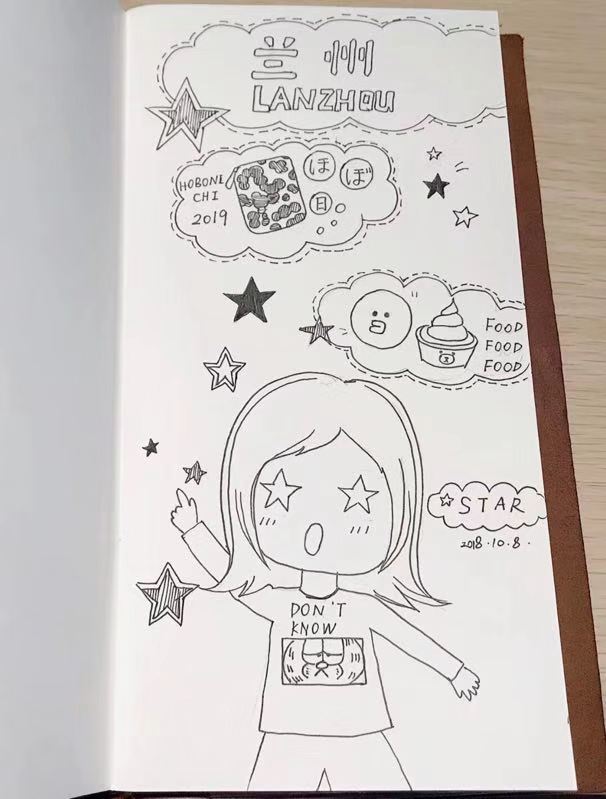 兰州
LANZHOU
HOBONI
CHI
2019
ほぼ
日
FOOD
FOOD
FOOD
STAR
2018.10.8.
DON'T
KNOW